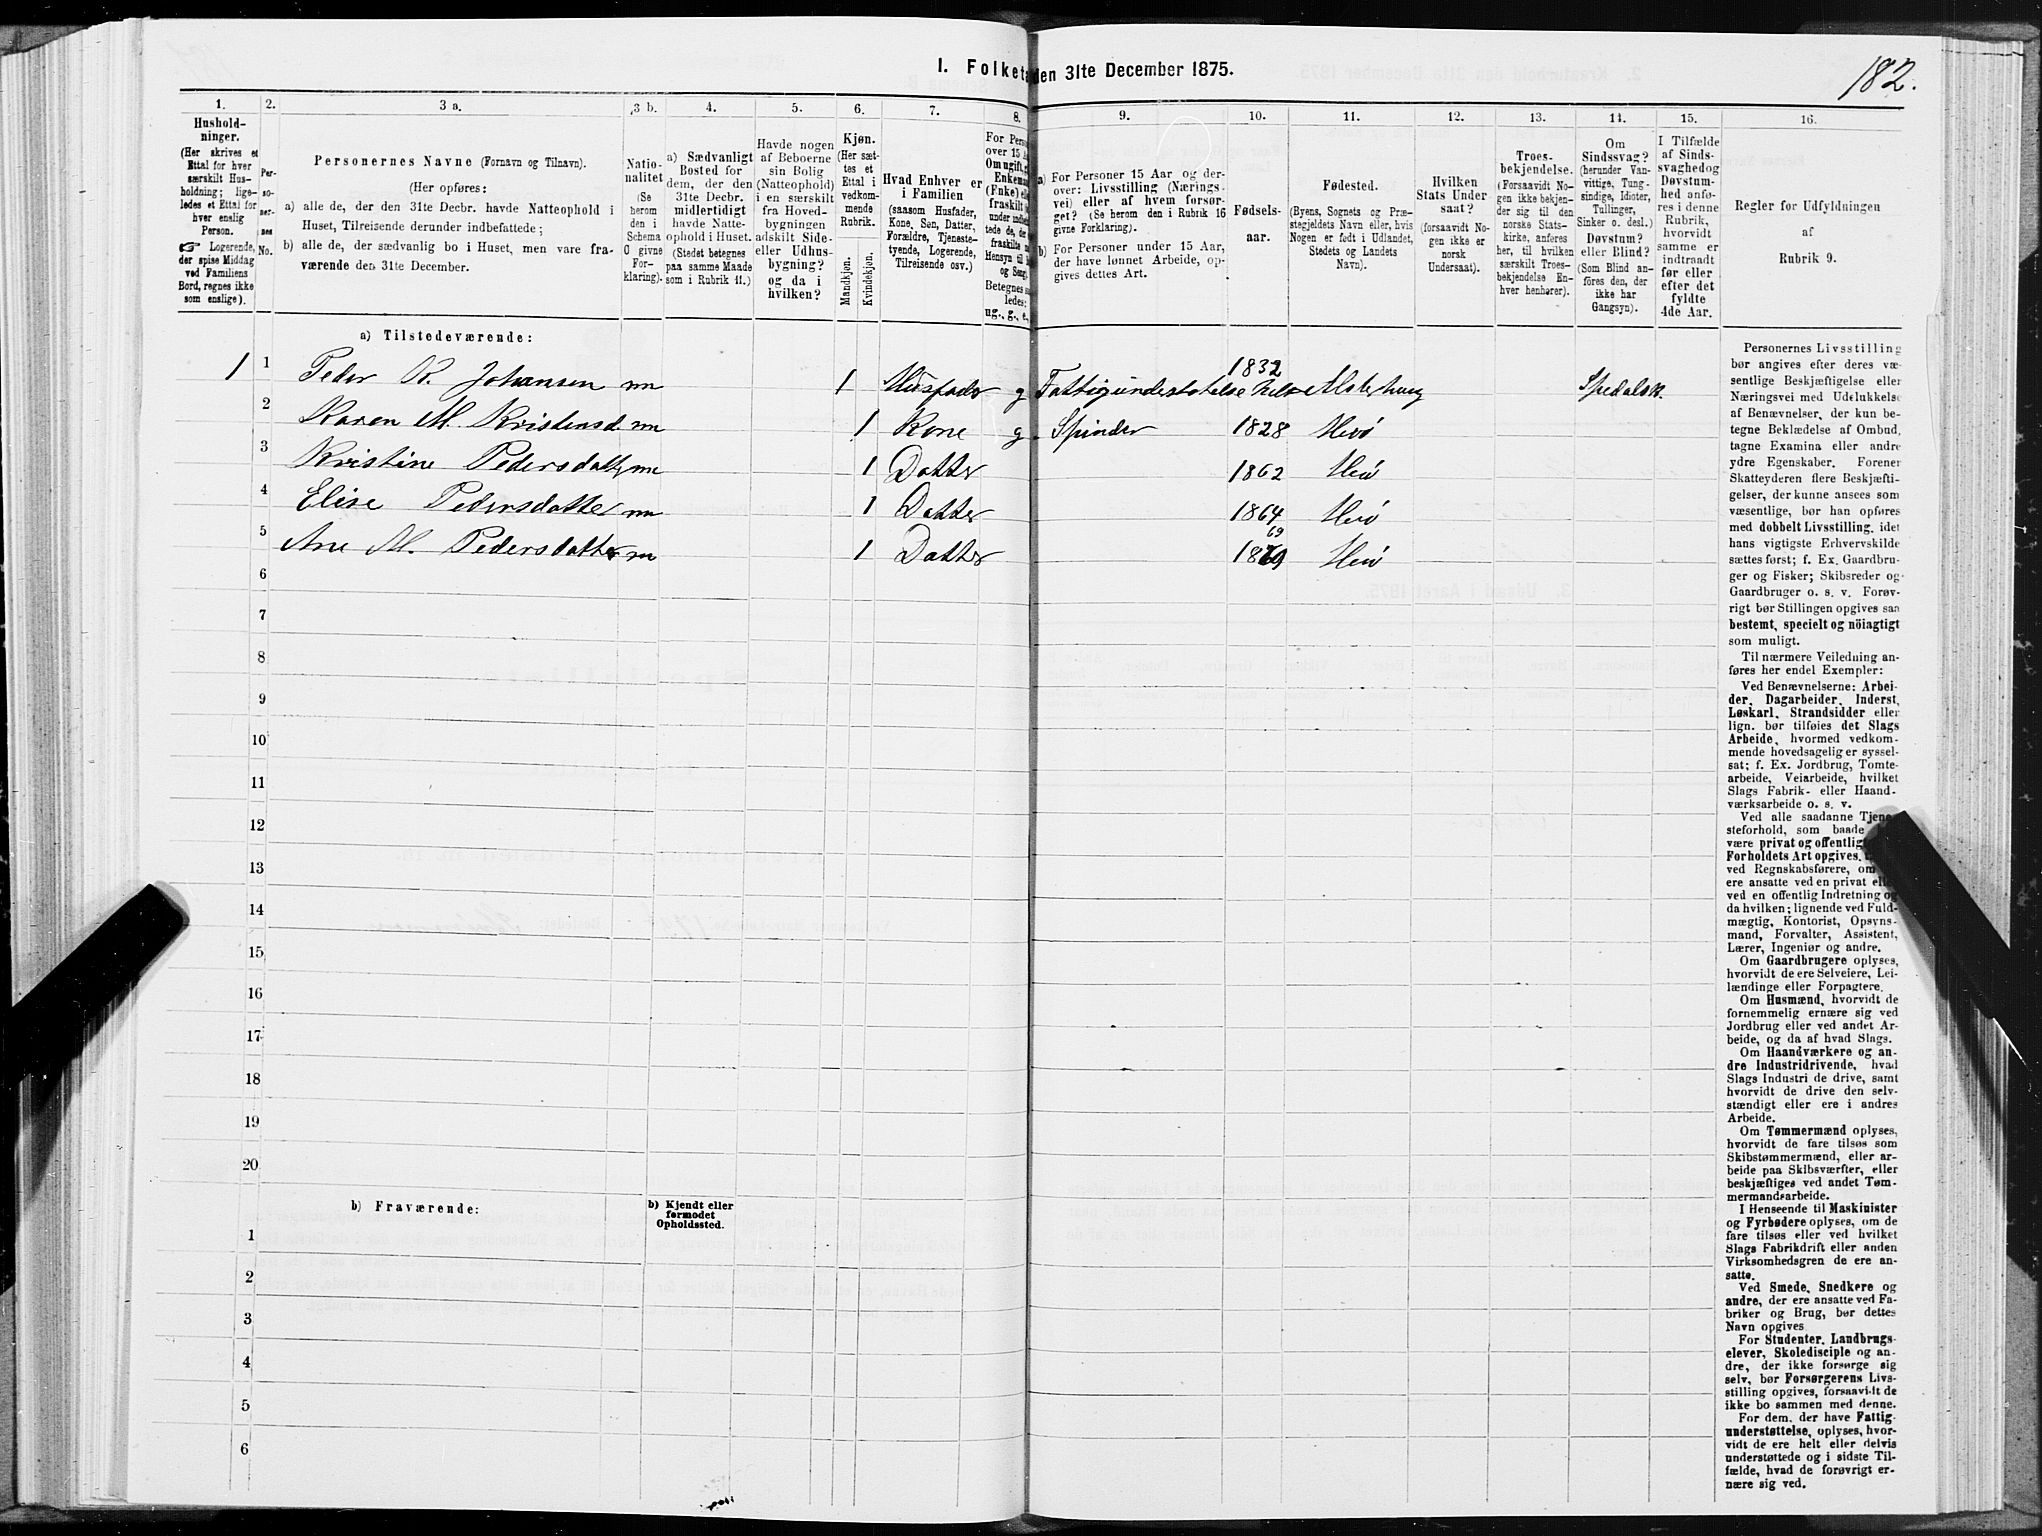 182.
I. Folketa den 31te December 1875.
1. 2. 3 a. 3 b. 4. 5. 6. 7. 8. 9. 10. 11. 12. 13. 14. 15. 16.
Hushold-
ninger.
(Her skrives et
Ettal for hver
særskilt Hus-
holdning; lige-
ledes et Ettal for
hver enslig
Person.
☞ Logerende,
der spise Middag
ved Familiens
Bord, regnes ikke
som enslige).
Per-
so-
ner-
nes
No.
Personernes Navne (Fornavn og Tilnavn).
(Her opføres:
a) alle de, der den 31te Decbr. havde Natteophold i
Huset, Tilreisende derunder indbefattede;
b) alle de, der sædvanlig bo i Huset, men vare fra-
værende den 31te December.
Natio-
nalitet
(Se
herom
den i
Schema
O givne
For-
klaring).
a) Sædvanligt
Bosted for
dem, der den
31te Decbr.
midlertidigt
havde Natte-
ophold i Huset.
(Stedet betegnes
paa samme Maade
som i Rubrik 11.)
Havde nogen
af Beboerne
sin Bolig
(Natteophold)
i en særskilt
fra Hoved-
bygningen
adskilt Side-
eller Udhus-
bygning?
og da i
hvilken?
Kjøn.
(Her sæt-
tes et
Ettal i
vedkom-
mende
Rubrik.
Mandkjøn.
Kvindekjøn.
Hvad Enhver er
i Familien
(saasom Husfader,
Kone, Søn, Datter,
Forældre, Tjeneste-
tyende, Logerende,
Tilreisende osv.)
For Perso
over 15 A
Om ugift, g
Enkem
(Fnke) elle
fraskilt
under indbe
tede de, der
fraskilte
Hensyn til
og Seng.
Betegnes s
ledes:
ug., g., e.,
a) For Personer 15 Aar og der-
over: Livsstilling (Nærings-
vei) eller af hvem forsør-
get? (Se herom den i Rubrik 16
givne Forklaring).
b) For Personer under 15 Aar,
der have lønnet Arbeide, op-
gives dettes Art.
Fødsels-
aar.
Fødested.
(Byens, Sognets og Præ-
stegjeldets Navn eller, hvis
Nogen er født i Udlandet,
Stedets og Landets
Navn).
Hvilken
Stats Under
saat?
(forsaavidt No-
gen ikke er
norsk
Undersaat).
Troes-
bekjendelse.
(Forsaavidt No-
gen ikke bekjen-
der sig til den
norske Stats-
kirke, anføres
her, til hvilken
særskilt Troes-
bekjendelse En-
hver henhører).
Om
Sindssvag?
(herunder Van-
vittige, Tung-
sindige, Idioter,
Tullinger,
Sinker o. desl.)
Døvstum?
eller Blind?
(Som Blind an-
føres den, der
ikke har
Gangsyn).
I Tilfælde
af Sinds-
svaghed og
Døvstum-
hed anfø-
res i denne
Rubrik,
hvorvidt
samme er
indtraadt
før eller
efter det
fyldte
4de Aar.
Regler for Udfyldningen
af
Rubrik 9.
a) Tilstedeværende:
1 1 Peder K. Johansen nn 1 Husfader g Fattigunderstøttelse helt 1832 Alstehaug Spedalsk.
2 Karen M. Kristensd. nn 1 Kone g Spinder 1828 Herø
3 Kristine Pedersdatter nn 1 Datter 1862 Herø
4 Elise Pedersdatter nn 1 Datter 1864 Herø
5 Ane M. Pedersdatter nn 1 Datter 1869 69 Herø
6
7
8
9
10
11
12
13
14
15
16
17
18
19
20
b) Fraværende:
b) Kjendt eller
formodet
Opholdssted.
1
2
3
4
5
6
Personernes Livsstilling
bør angives efter deres væ-
sentlige Beskjæftigelse eller
Næringsvei med Udelukkelse
af Benævnelser, der kun be-
tegne Beklædelse af Ombud,
tagne Examina eller andre
ydre Egenskaber. Forener
Skatteyderen flere Beskjæfti-
gelser, der kunne ansees som
væsentlige, bør han opføres
med dobbelt Livsstilling, idet
hans vigtigste Erhvervskilde
sættes først; f. Ex. Gaardbru-
ger og Fisker; Skibsreder og
Gaardbruger o. s. v. Forøv-
rigt bør Stillingen opgives saa
bestemt, specielt og nöiagtigt
som muligt.
Til nærmere Veiledning an-
føres her endel Exempler:
Ved Benævnelserne: Arbei-
der, Dagarbeider, Inderst,
Løskarl, Strandsidder eller
lign. bør tilføies det Slags
Arbeide, hvormed vedkom-
mende hovedsagelig er syssel-
sat; f. Ex. Jordbrug, Tomte-
arbeide, Veiarbeide, hvilket
Slags Fabrik- eller Haand-
værksarbeide o. s. v.
Ved alle saadanne Tjene-
steforhold, som baade
være privat og offentlig
Forholdets Art opgives,
ved Regnskabsførere, om
ere ansatte ved en privat elle
ved en offentlig Indretning og
da hvilken; lignende ved Fuld-
mægtig, Kontorist, Opsyns-
mand, Forvalter, Assistent,
Lærer, Ingeniør og andre.
Om Gaardbrugere oplyses,
hvorvidt de ere Selveiere, Lei-
lændinge eller Forpagtere.
Om Husmænd, hvorvidt de
fornemmelig ernære sig ved
Jordbrug eller ved andet Ar-
beide, og da af hvad Slags.
Om Haandværkere og an-
dre Industridrivende, hvad
Slags Industri de drive, samt
hvorvidt de drive den selv-
stændigt eller ere i andres
Arbeide.
Om Tømmermænd oplyses,
hvorvidt de fare tilsøs som
Skibstømmermænd, eller ar-
beide paa Skibsværfter, eller
beskjæftiges ved andet Tøm-
mermandsarbeide.
I Henseende til Maskinister
og Fyrbødere oplyses, om de
fare tilsøs eller ved hvilket
Slags Fabrikdrift eller anden
Virksomhedsgren de ere an-
satte.
Ved Smede, Snedkere og
andre, der ere ansatte ved Fa-
briker og Brug, bør dettes
Navn opgives
For Studenter, Landbrugs-
elever, Skoledisciple og an-
dre, der ikke forsørge sig
selv, bør Forsørgerens Livs-
stilling opgives, forsaavidt de
ikke bo sammen med denne.
For dem, der have Fattig-
understøttelse, oplyses, hvor-
vidt de ere helt eller delvis
understøttede og i sidste Til-
fælde, hvad de forøvrigt er-
nære sig ved.